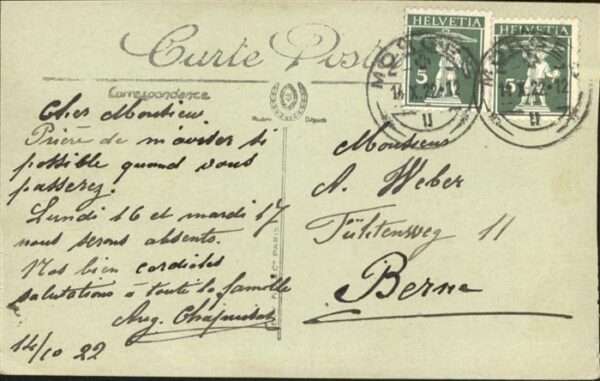 Carte Postale
Correspondance
HELVETIA
5
HELVETIA
5
14.X.22-12
II
X.22-12
II
Cher Monsieur
Prière de m'aviser si
possible quand vous
passerez.
Lundi 16 et mardi 17
nous serons absents.
Nos bien cordiales
salutations à toute la famille
Aug.
14/10 22
Monsieur
A. Weber
11
Berne